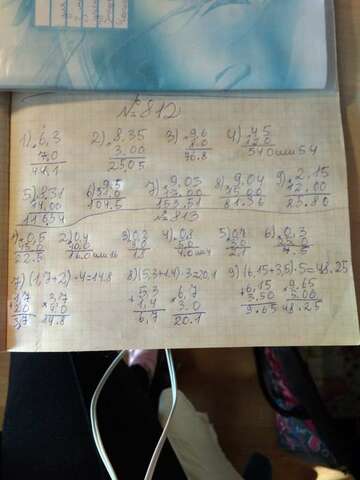 № 812
1) 6,3 2) 8.35 3) 9,6 4) 45
7,0 3.00 8.0 12.0
44,1 25,05 76.8 540 или 54
5) 831 6) 9,5 7) 9.03 8) 9,04 9) 2,15
14,00 11,0 17,00 9,00 12,00
11634 104.5 153,51 81.36 25.80
№ 813
1) 0,5 2) 0,4 3) 0,3 4) 0,8 5) 0,7 6) 0,3
45.0 40,0 6,0 5,0 3,0 25.0
22.5 16.0 или 16 1.8 4.0 или 4 2.1 7.5
7) (1,7+2)·4=14.8 8) (5,3+1,4)·3=20.1 9) (6,15+3,5)·5=48.25
1,7 3,7 5,3 6,7 6,15 9,65
2,0 4,0 1,4 3,0 3,50 5.00
3,7 14.8 6,7 20.1 9.65 48.25